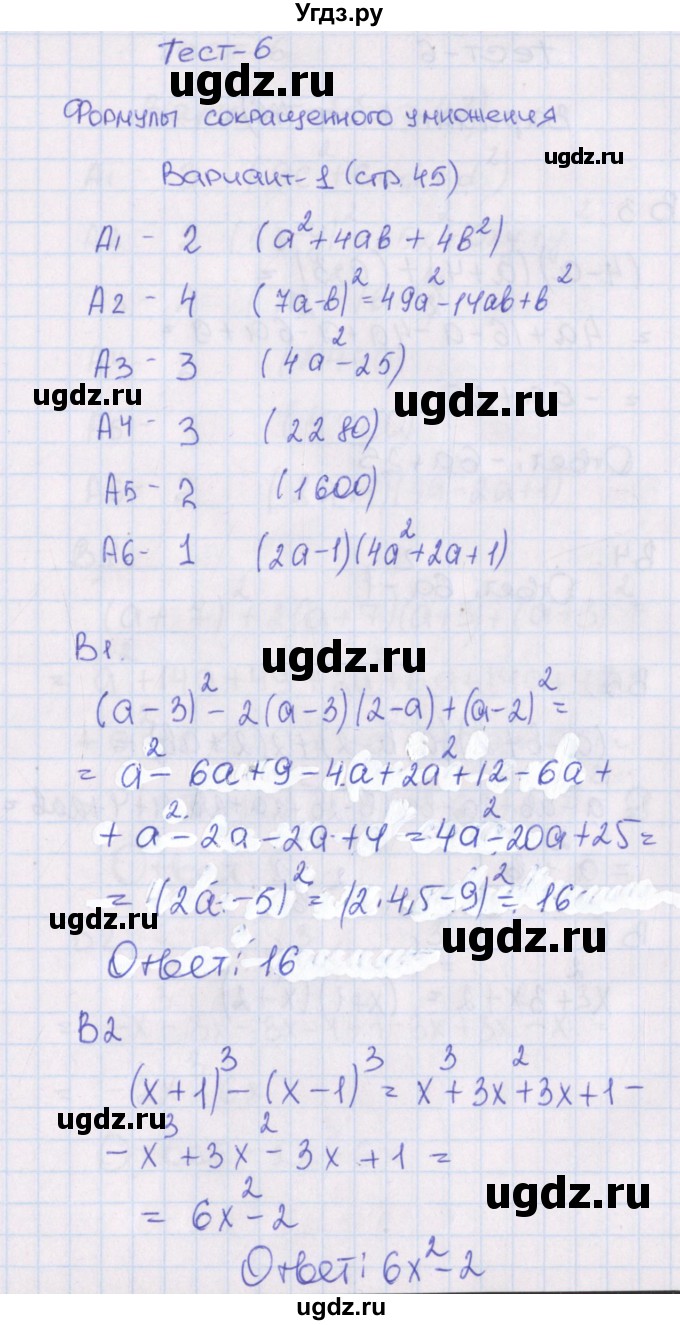 Угдз.ру
Тест-6
ugdz.ru
Формулы сокращенного умножения
ugdz.ru
Вариант-1 (стр. 45)
A1 - 2 (a²+4ab+4b²)
A2 - 4 (7a-b)²=49a²-14ab+b²
A3 - 3 (4a²-25)
ugdz.ru
ugdz.ru
A4 - 3 (2280)
A5 - 2 (1600)
ugdz.ru
A6- 1 (2a-1)(4a²+2a+1)
B1.
ugdz.ru
(a-3)²-2(a-3)(2-a)+(a-2)²=
= a²-6a+9-4a+2a²+12-6a+
+a²-2a-2a+4=4a²-20a+25=
=(2a-5)²=(2·4,5-9)²=16
ugdz.ru
ugdz.ru
Ответ: 16
B2
(x+1)³-(x-1)³=x³+3x²+3x+1-
ugdz.ru
-x³+3x²-3x+1=
=6x²-2
ugdz.ru
Ответ: 6x²-2
ugdz.ru